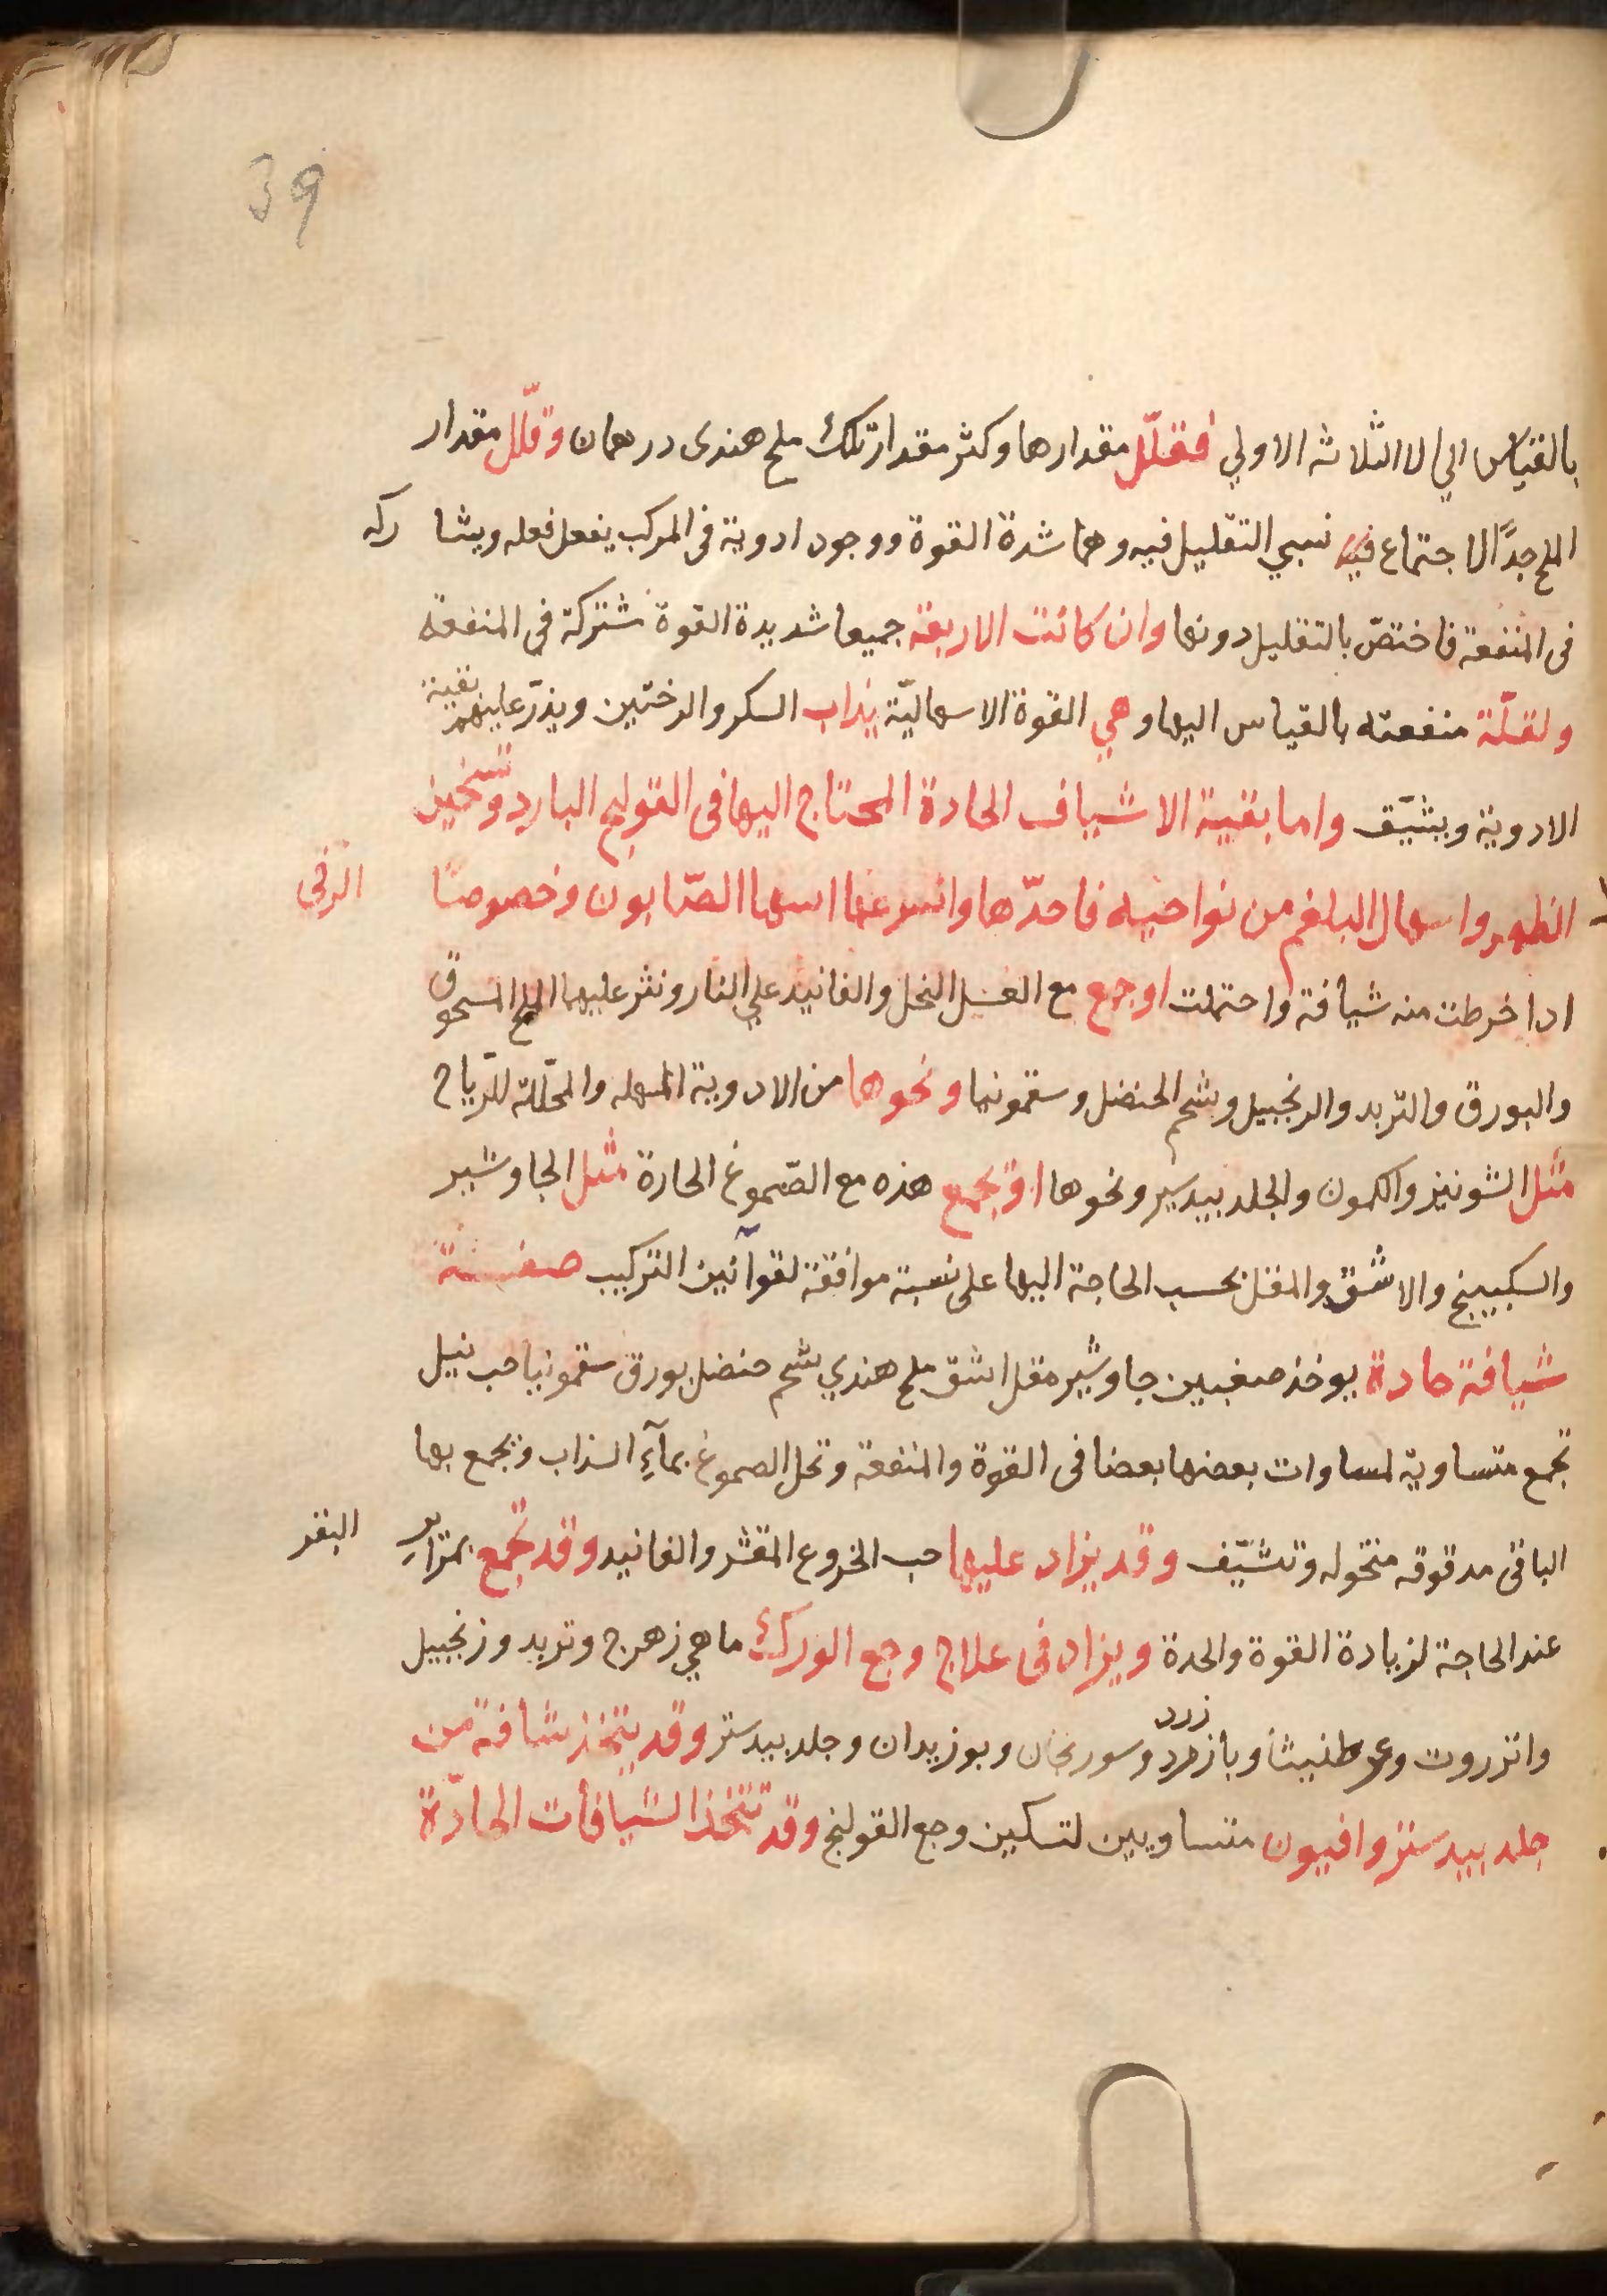 39
بالقياس الي الا الثلاثه الاولي فقلّل مقدارها وكثر مقدار تلك ملح هندى درهمان وقلّل مقدار
الملح جدًّا لاجتماع فيه نسبي التقليل فيه وهما شدة القوة ووجود ادوية فى المركب يفعل فعله ويشاركه
فى المنفعة فاختصّ بالتقليل دونها وان كانت الاربعة جميعا شديدة القوة مشتركة في المنفعة
ولقلّة منفعته بالقياس اليها وهي القوة الاسهاليّة يذاب السكر والرختين ويذرّ عليهم بقية
الادوية ويشيّف واما بقية الاشياف الحادة المحتاج اليها فى القولنج البارد وتسخين
الظهر واسهال البلغم من نواحيه فاحدّها واسرعها اسهالا الصّابون وخصوصًا الرقى
اذا خرطت منه شيافة واحتملت او جمع مع العسل النحل والفانيد علي النار ونثر عليهما الملح المسحوق
والبورق والتربد والزنجبيل وشحم الحنضل وسقمونيا ونحوها من الادوية المسهله والمحلّلة للرّياح
مثل الشونيز والكمون والجلد بيدسير ونحوها او تجمع هذه مع الصّموغ الحارة مثل الجاوشير
والسكبينج والاشق والمقل بحسب الحاجة اليها على نسبة موافقة لقوانين التركيب صفة
شيافة حادة يوخذ صغبين جاوشير مقل اشق ملح هندي شحم حنضل بورق سقمونيا حب نيل
تجمع متساوية لمساوات بعضها بعضا فى القوة والمنفعة وتحل الصموغ بمآءِ السذاب وتجمع بها
الباقى مدقوقه منخوله وتشيّف وقد يزاد عليها حب الخروع المقشر والفانيد وقد تجمع بمراير البقر
عند الحاجة لزيادة القوة والحدة ويزاد فى علاج وجع الورك ماهي زهرج وتربد وزنجبيل
وانزروت وعرطنيثا وبازرد وسورنجان وبوزيدان وجلد بيدستر وقد يتخذ شافة من
جلد بيدستر وافيون متساويين لتسكين وجع القولنج وقد تتخذ الشيافات الحادّة